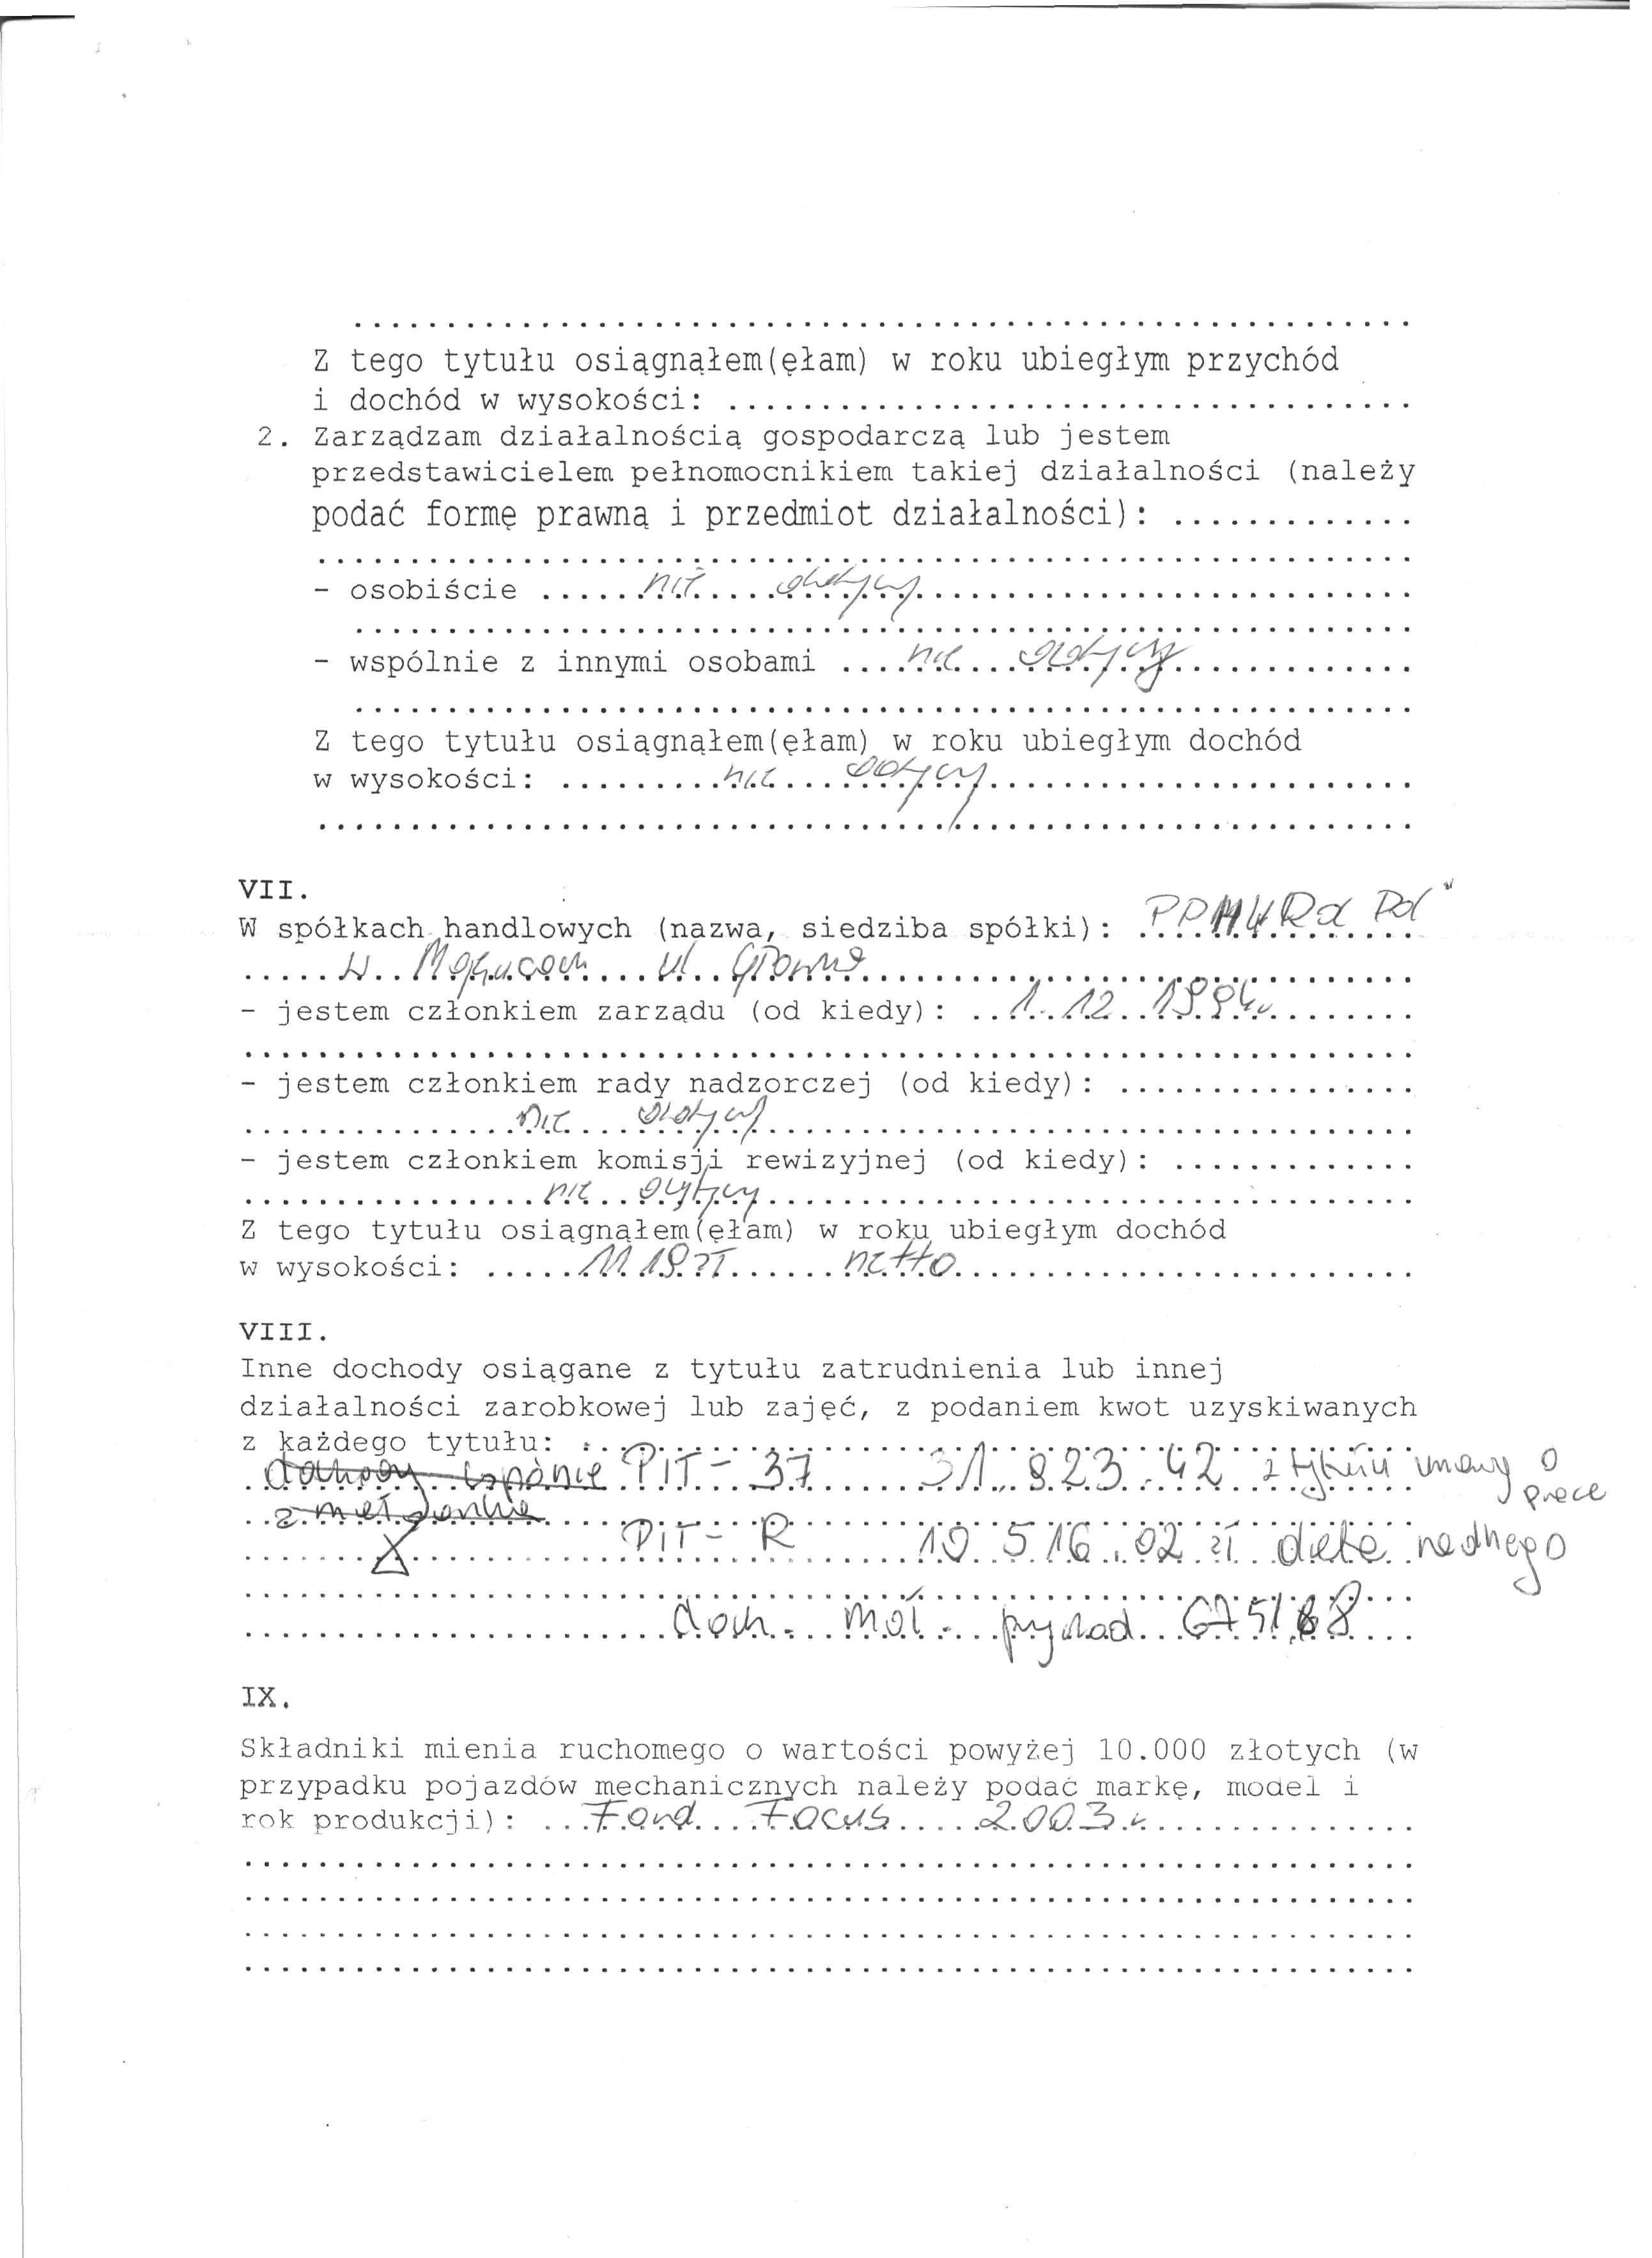 Z tego tytułu osiągnąłem(ęłam) w roku ubiegłym przychód
i dochód w wysokości: ......................................
2. Zarządzam działalnością gospodarczą lub jestem
przedstawicielem pełnomocnikiem takiej działalności (należy
podać formę prawną i przedmiot działalności): .............
- osobiście ...... nie dotyczy
- wspólnie z innymi osobami .... nie dotyczy
Z tego tytułu osiągnąłem(ęłam) w roku ubiegłym dochód
w wysokości: ......... nie dotyczy
VII.
W spółkach handlowych (nazwa, siedziba spółki):
w ul. Główna
- jestem członkiem zarządu (od kiedy): .. 1. 12. 1994r
- jestem członkiem rady nadzorczej (od kiedy): ................
nie dotyczy
- jestem członkiem komisji rewizyjnej (od kiedy): .............
nie dotyczy
Z tego tytułu osiągnąłem(ęłam) w roku ubiegłym dochód
w wysokości: ...... zł netto
VIII.
Inne dochody osiągane z tytułu zatrudnienia lub innej
działalności zarobkowej lub zajęć, z podaniem kwot uzyskiwanych
z każdego tytułu:
dochody wspólnie PIT-37 31.823.42 z tytułu umowy o
z małżonkie prace
PIT-R 10.516.02 zł dieta radnego
doch. przychód
IX.
Składniki mienia ruchomego o wartości powyżej 10.000 złotych (w
przypadku pojazdów mechanicznych należy podać markę, model i
rok produkcji): ... Ford Focus 2003 r.